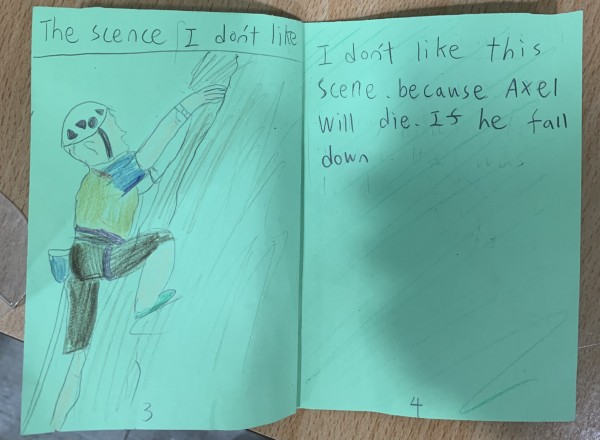 The scence I don't like
3
I don't like this
scene. because Axel
will die. If he fall
down
4